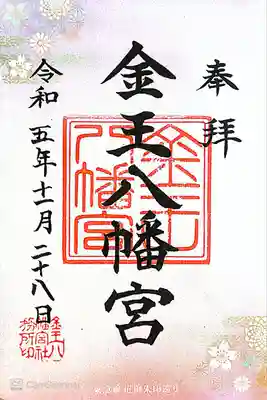 奉拝
金王八幡宮
金王八幡宮
令和五年十一月二十八日
金王八
幡宮社
務所印